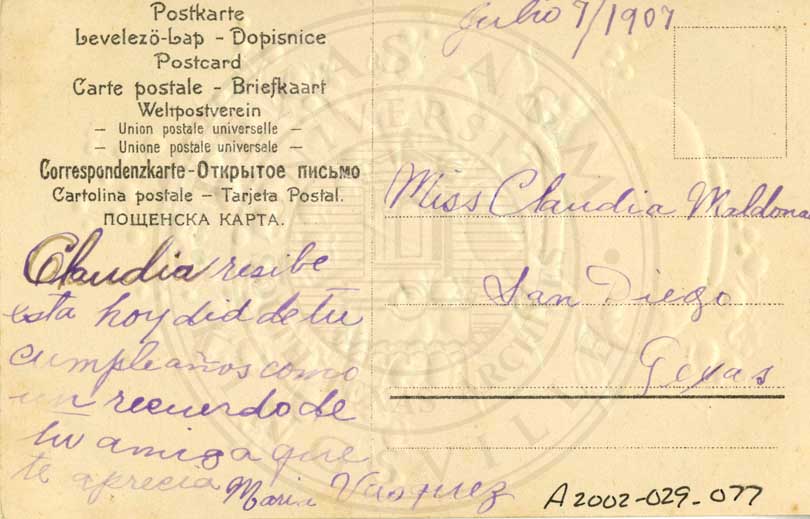 Postkarte
Levelező-Lap - Dopisnice
Postcard
Carte postale - Briefkaart
Weltpostverein
- Union postale universelle -
- Unione postale universale -
Correspondenzkarte - Открытое письмо
Cartolina postale - Tarjeta Postal.
ПОЩЕНСКА КАРТА.
Claudia resibe
esta hoy did de tu
cumpleaños como
un recuerdo de
tu amiga que
te aprecia Maria Vasquez
Julio 7/1907
Miss Claudia Maldona
San Diego
Texas
A2002-029-077